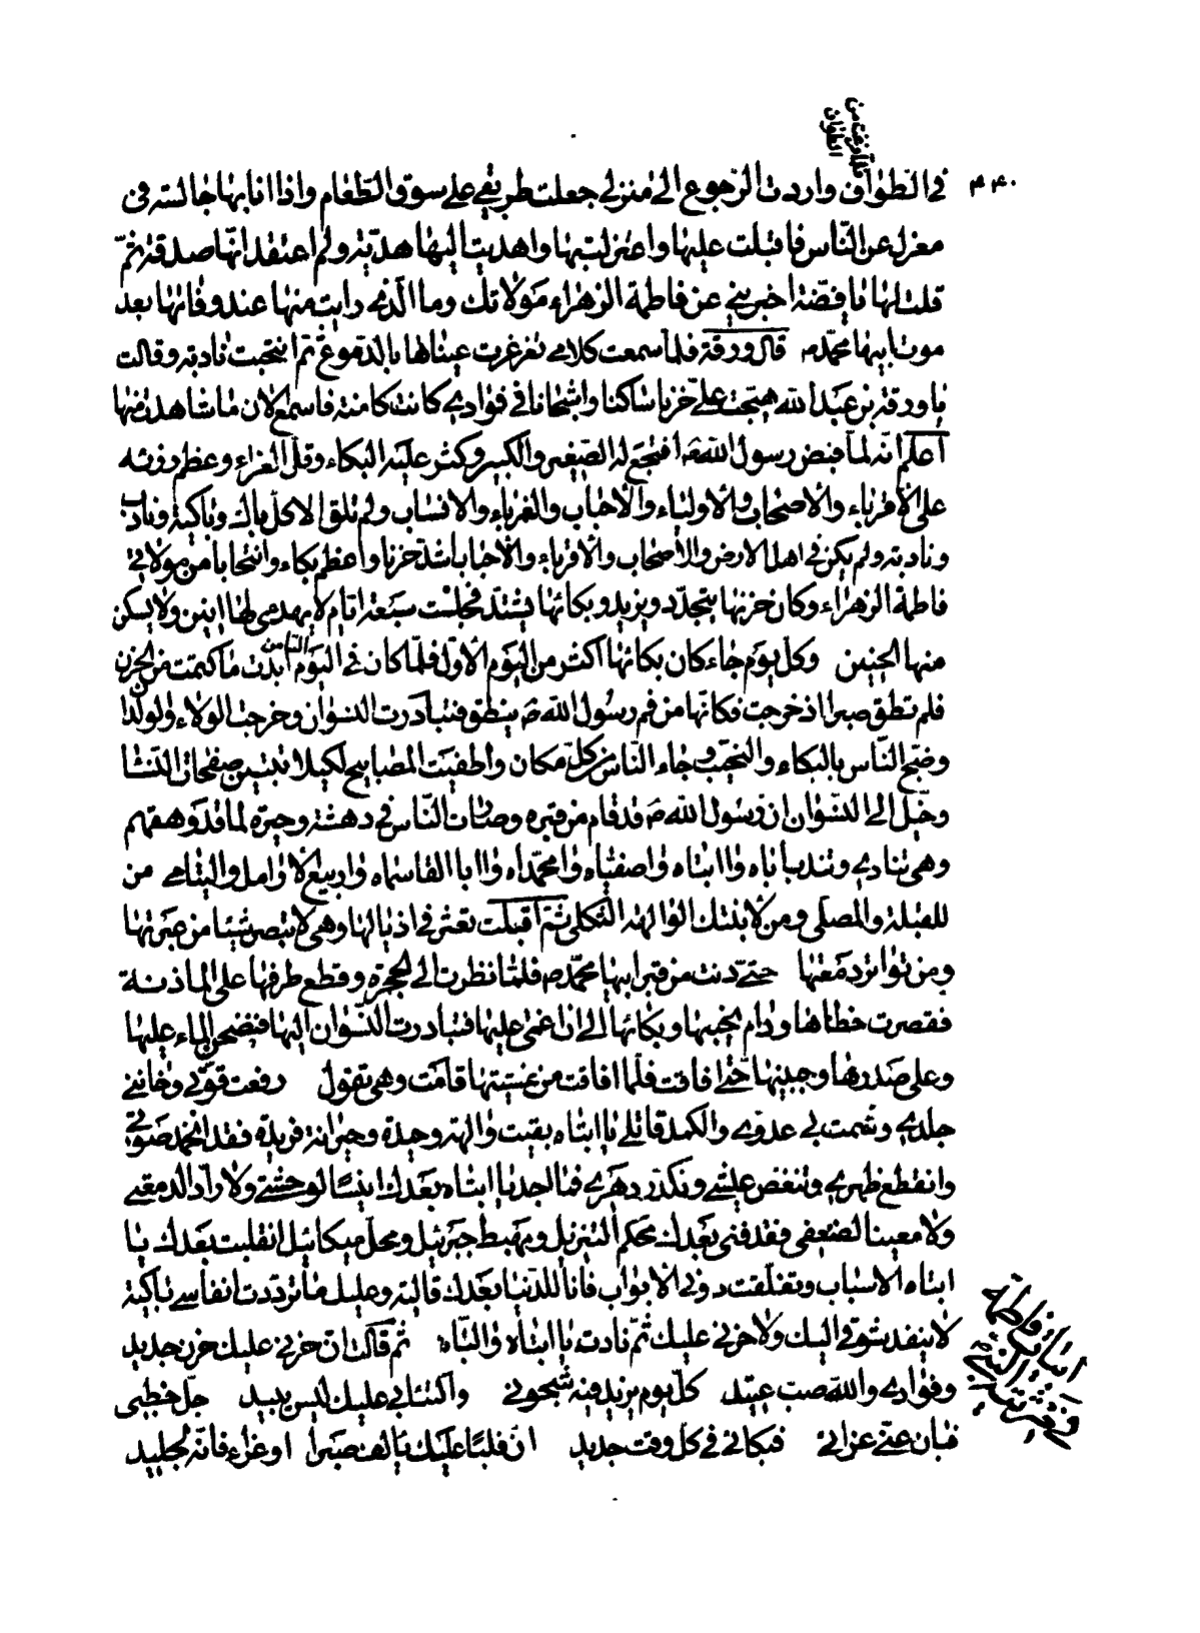 فلما فرغت من
الطواف
۴۴۰
في الطواف واردت الرجوع الى منزلي جعلت طريقي على سوق الطعام واذا انا بها جالسة في
معزل عن الناس فاقبلت عليها واعتزلت بها واهديت اليها هدية ولم اعتقد انها صدقة ثم
قلت لها يا فضة اخبريني عن فاطمة الزهراء مولاتك وما الذي رايت منها عند وفاتها بعد
موت ابيها محمد ص قال ورقة فلما سمعت كلامي تغرغرت عيناها بالدموع ثم انتحبت نادبة وقالت
يا ورقة بن عبد الله هيجت علي حزنا ساكنا واشجانا في فؤادي كانت كامنة فاسمع الان ما شاهدت منها
اعلم انه لما قبض رسول الله ص افتجع له الصغير والكبير وكثر عليه البكاء وقل العزاء وعظم رزئه
على الاقرباء والاصحاب والاولياء والاحباب والغرباء والانساب ولم تلق الا كل باك وباكية ونادب
ونادبة ولم يكن في اهل الارض والاصحاب والاقرباء والاحباب اشد حزنا واعظم بكاء وانتحابا من مولاتي
فاطمة الزهراء وكان حزنها يتجدد ويزيد وبكائها يشتد فجلست سبعة ايام لا يهدى لها انين ولا يسكن
منها الحنين وكل يوم جاء كان بكائها اكثر من اليوم الاول فلما كان في اليوم الثامن ابدت ما كتمت من الحزن
فلم تطق صبرا اذ خرجت فكانها من فم رسول الله ص ينطق فتبادرت النسوان وخرجت الولاء والولدان
وضج الناس بالبكاء والنحيب وجاء الناس من كل مكان واطفيت المصابيح لكيلا تتبين صفحات النساء
وخيل الى النسوان ان رسول الله ص قد قام من قبره وصارت الناس في دهشة وحيرة لما قد رهقهم
وهي تنادي وتندب اباه وا ابتاه واصفياه وامحمداه وا ابا القاسماه واربيع الارامل واليتامى من
للقبلة والمصلى ومن لابنتك الوالهة الثكلى ثم اقبلت تعثر في اذيالها وهي لا تبصر شيئا من عبرتها
ومن تواتر دمعتها حتى دنت من قبر ابيها محمد ص فلما نظرت الى الحجرة وقطع طرفها على الماذنة
فقصرت خطاها ودام نحيبها وبكائها الى ان اغمي عليها فتبادرت النسوان اليها فنضحن الماء عليها
وعلى صدرها وجبينها حتى افاقت فلما افاقت من غشيتها قامت وهي تقول رفعت قوتي وخانني
جلدي وشمت بي عدوي والكمد قاتلي يا ابتاه بقيت والهة وحيدة وحيرانة فريدة فقد انخمد صوتي
وانقطع ظهري وتنغص عيشي وتكدر دهري فما اجد يا ابتاه بعدك انيسا لوحشتي ولا رادا لدمعتي
ولا معينا لضعفي فقد فني بعدك محكم التنزيل ومهبط جبرئيل ومحل ميكائيل انقلبت بعدك يا
ابتاه الاسباب وتغلقت دوني الابواب فانا للدنيا بعدك قالية وعليك ما ترددت انفاسي باكية
لا ينفد شوقي اليك ولا حزني عليك ثم نادت يا ابتاه والباه ثم قالت ان حزني عليك حزن جديد
وفؤادي والله صب عنيد كل يوم يزيد فيه شجوني واكتئابي عليك ليس يبيد جل خطبي
فبان عني عزائي فبكائي في كل وقت جديد ان قلبا عليك يالف صبرا او عزاء فانه لجليد
ابيات فاطمة
في مرثية النبي